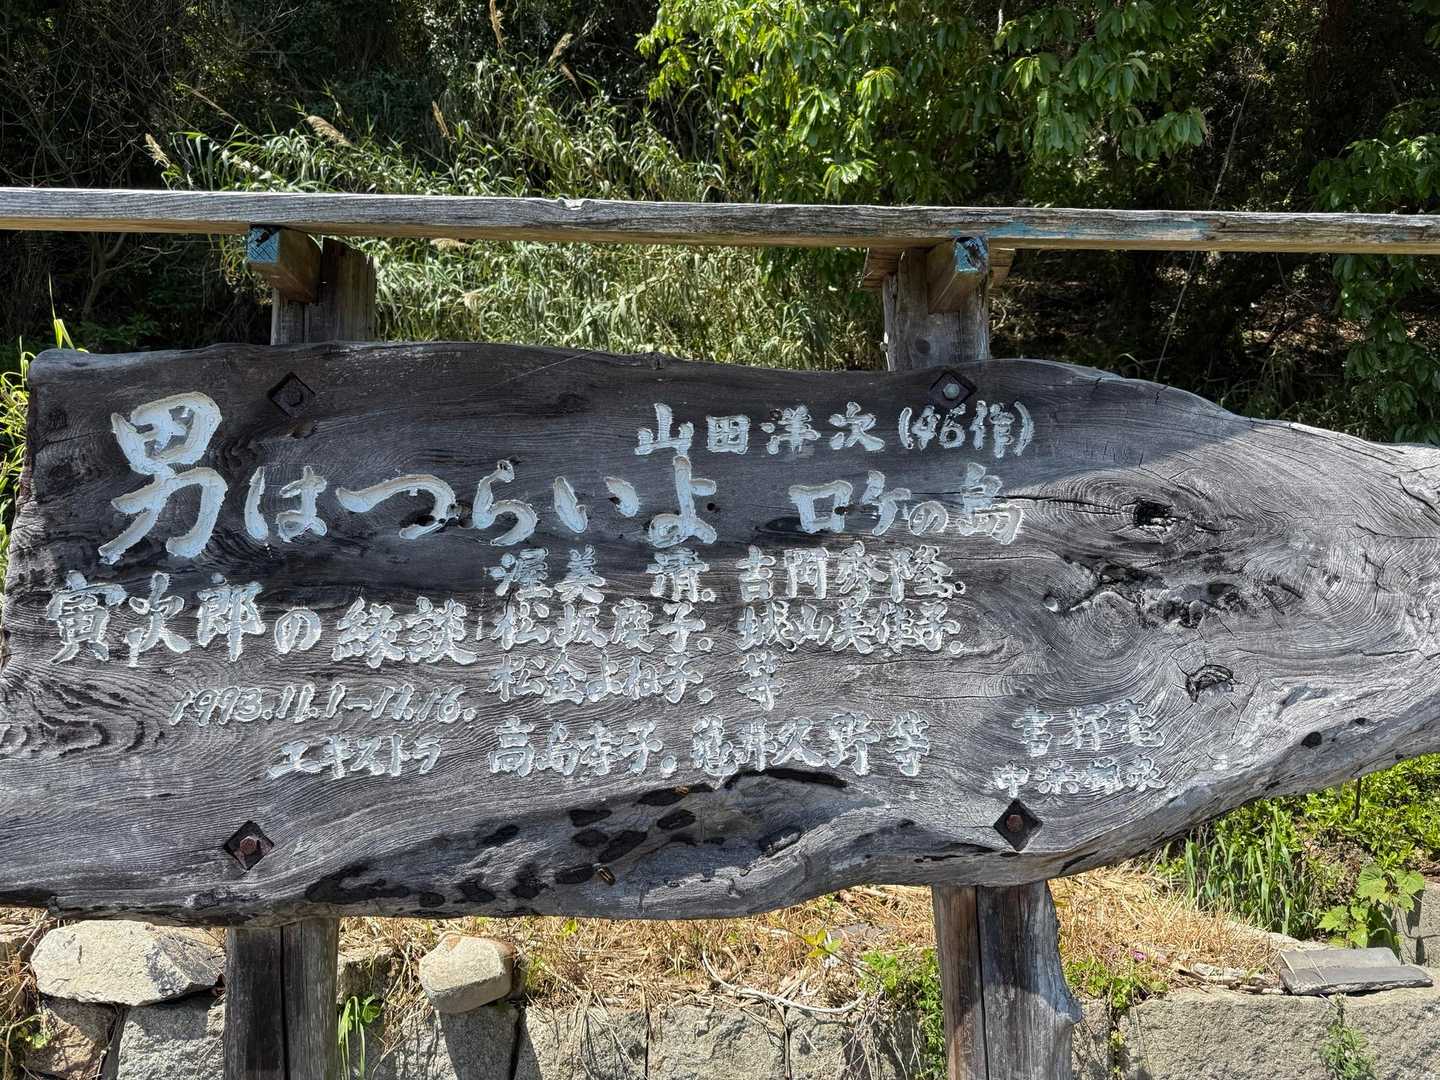 山田洋次(46作)
男はつらいよ ロケの島
寅次郎の縁談
渥美 清. 吉岡秀隆.
松坂慶子. 城山美佳子.
松金よね子. 等
1993.11.1~11.16.
エキストラ 高島幸子. 亀井久野等